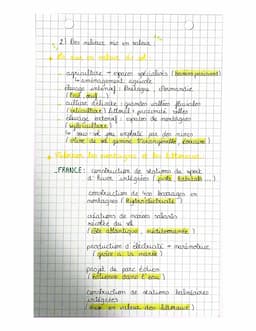 2) Des milieux mis en valeur
agriculture → espaces spécialisés (bassins parisiens)
↳ aménagement agricole
élevage intensif : Bretagne, Normandie
(lait, œuf...)
culture délicate : grandes vallées fluviales
(viticulture) littoral + proximité villes
élevage extensif : espaces de montagnes
(sylviculture)
↳ sous-sol peu exploité par des mines
(mine de sel gemme Varangéville,
Valoriser les montagnes et les littoraux
FRANCE : construction de stations de sport
d'hiver intégrées (
construction de 400 barrages en
montagnes (hydroélectricité)
créations de marais salants
récolte du sel
(côte atlantique, méditerranée)
production d'électricité → marémotrice
(grâce à la marée)
projet du parc éolien
(éoliennes dans l'eau)
construction de stations balnéaires
intégrées
(mise en valeur des littoraux)